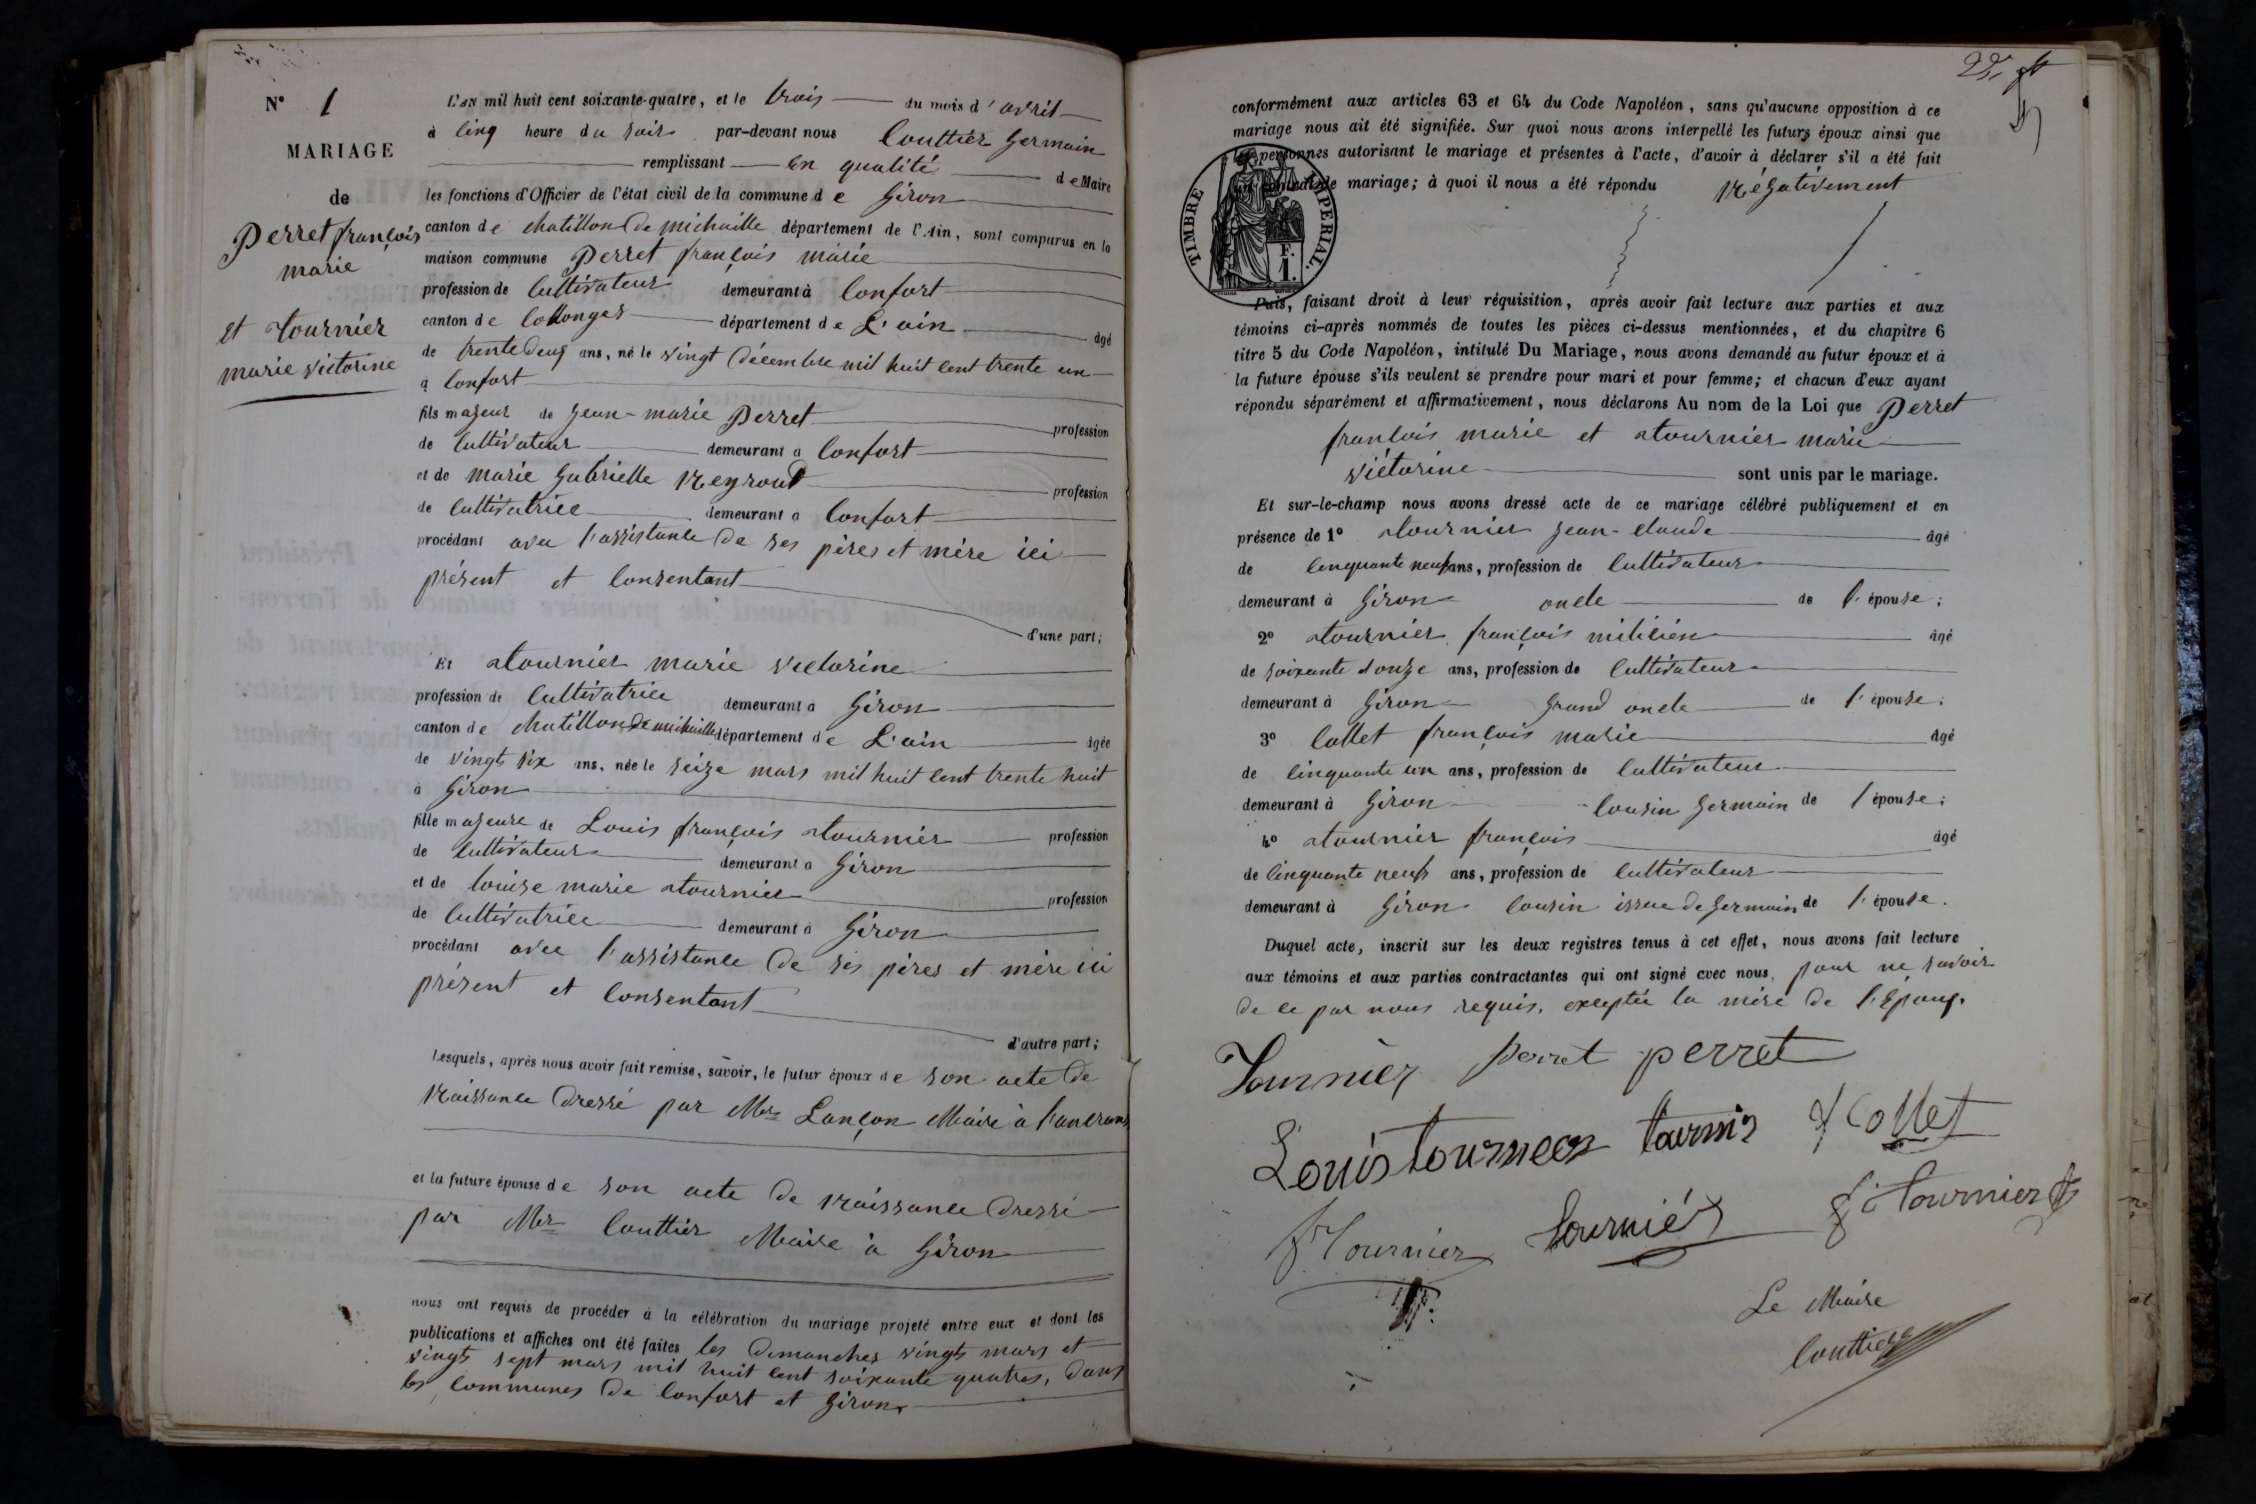 N° 1
MARIAGE
de
Perret françois
marie
et tournier
marie victorine
L'an mil huit cent soixante-quatre, et le trois du mois d'avril
à cinq heure du soir par-devant nous Couttier Germain
remplissant en qualité de Maire
les fonctions d'Officier de l'état civil de la commune de Giron
canton de chatillon de michaille département de l'Ain, sont comparus en la
maison commune Perret françois marie
profession de cultivateur demeurant à Confort
canton de Collonges département de L'ain âgé
de trente deux ans, né le vingt décembre mil huit cent trente un
à Confort
fils majeur de Jean-marie Perret profession
de cultivateur demeurant à Confort
et de marie Gabrielle Neyroud profession
de cultivatrice demeurant à Confort
procédant avec l'assistance de ses pères et mère ici
présent et consentant
d'une part;
Et tournier marie victorine
profession de cultivatrice demeurant à Giron
canton de chatillon de michaille département de L'ain âgée
de vingt six ans, née le seize mars mil huit cent trente huit
à Giron
fille majeure de Louis françois tournier profession
de cultivateur demeurant à Giron
et de louise marie tournier profession
de cultivatrice demeurant à Giron
procédant avec l'assistance de ses pères et mère ici
présent et consentant
d'autre part;
Lesquels, après nous avoir fait remise, savoir, le futur époux de son acte de
naissance dressé par Mr Lançon Maire à Lancrans
et la future épouse de son acte de naissance dressé
par Mr Couttier Maire à Giron
nous ont requis de procéder à la célébration du mariage projeté entre eux et dont les
publications et affiches ont été faites les dimanches vingts mars et
vingts sept mars mil huit cent soixante quatres, dans
les communes de Confort et Giron
conformément aux articles 63 et 64 du Code Napoléon, sans qu'aucune opposition à ce
mariage nous ait été signifiée. Sur quoi nous avons interpellé les futurs époux ainsi que
les personnes autorisant le mariage et présentes à l'acte, d'avoir à déclarer s'il a été fait
un contrat de mariage; à quoi il nous a été répondu négativement
TIMBRE IMPERIAL.
F.
1.
Puis, faisant droit à leur réquisition, après avoir fait lecture aux parties et aux
témoins ci-après nommés de toutes les pièces ci-dessus mentionnées, et du chapitre 6
titre 5 du Code Napoléon, intitulé Du Mariage, nous avons demandé au futur époux et à
la future épouse s'ils veulent se prendre pour mari et pour femme; et chacun d'eux ayant
répondu séparément et affirmativement, nous déclarons Au nom de la Loi que Perret
françois marie et tournier marie
victorine sont unis par le mariage.
Et sur-le-champ nous avons dressé acte de ce mariage célébré publiquement et en
présence de 1° tournier Jean-claude âgé
de cinquante neuf ans, profession de cultivateur
demeurant à Giron oncle de l'épouse;
2° tournier françois milicien âgé
de soixante donze ans, profession de cultivateur
demeurant à Giron grand oncle de l'épouse;
3° Collet françois marie âgé
de cinquante un ans, profession de cultivateur
demeurant à Giron cousin germain de l'épouse;
4° tournier françois âgé
de cinquante neuf ans, profession de cultivateur
demeurant à Giron cousin issue de Germain de l'épouse.
Duquel acte, inscrit sur les deux registres tenus à cet effet, nous avons fait lecture
aux témoins et aux parties contractantes qui ont signé avec nous, pour ne savoir
de ce par nous requis, exceptée la mère de l'Epoux.
Tournier perret perret
Louis tournier tournier f Collet
f Tournier tournier f. tournier
Le Maire
Couttier